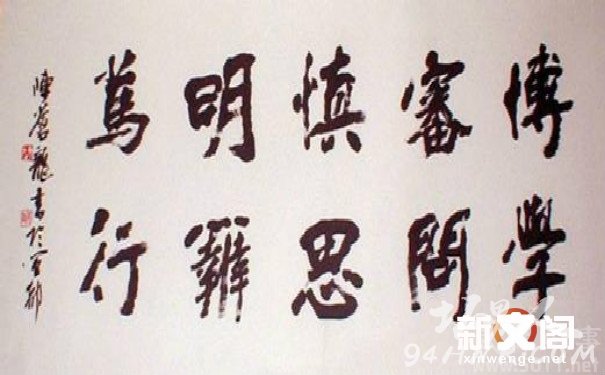 博學
審問
慎思
明辨
篤行
書於
新文阁
xinwenge.net